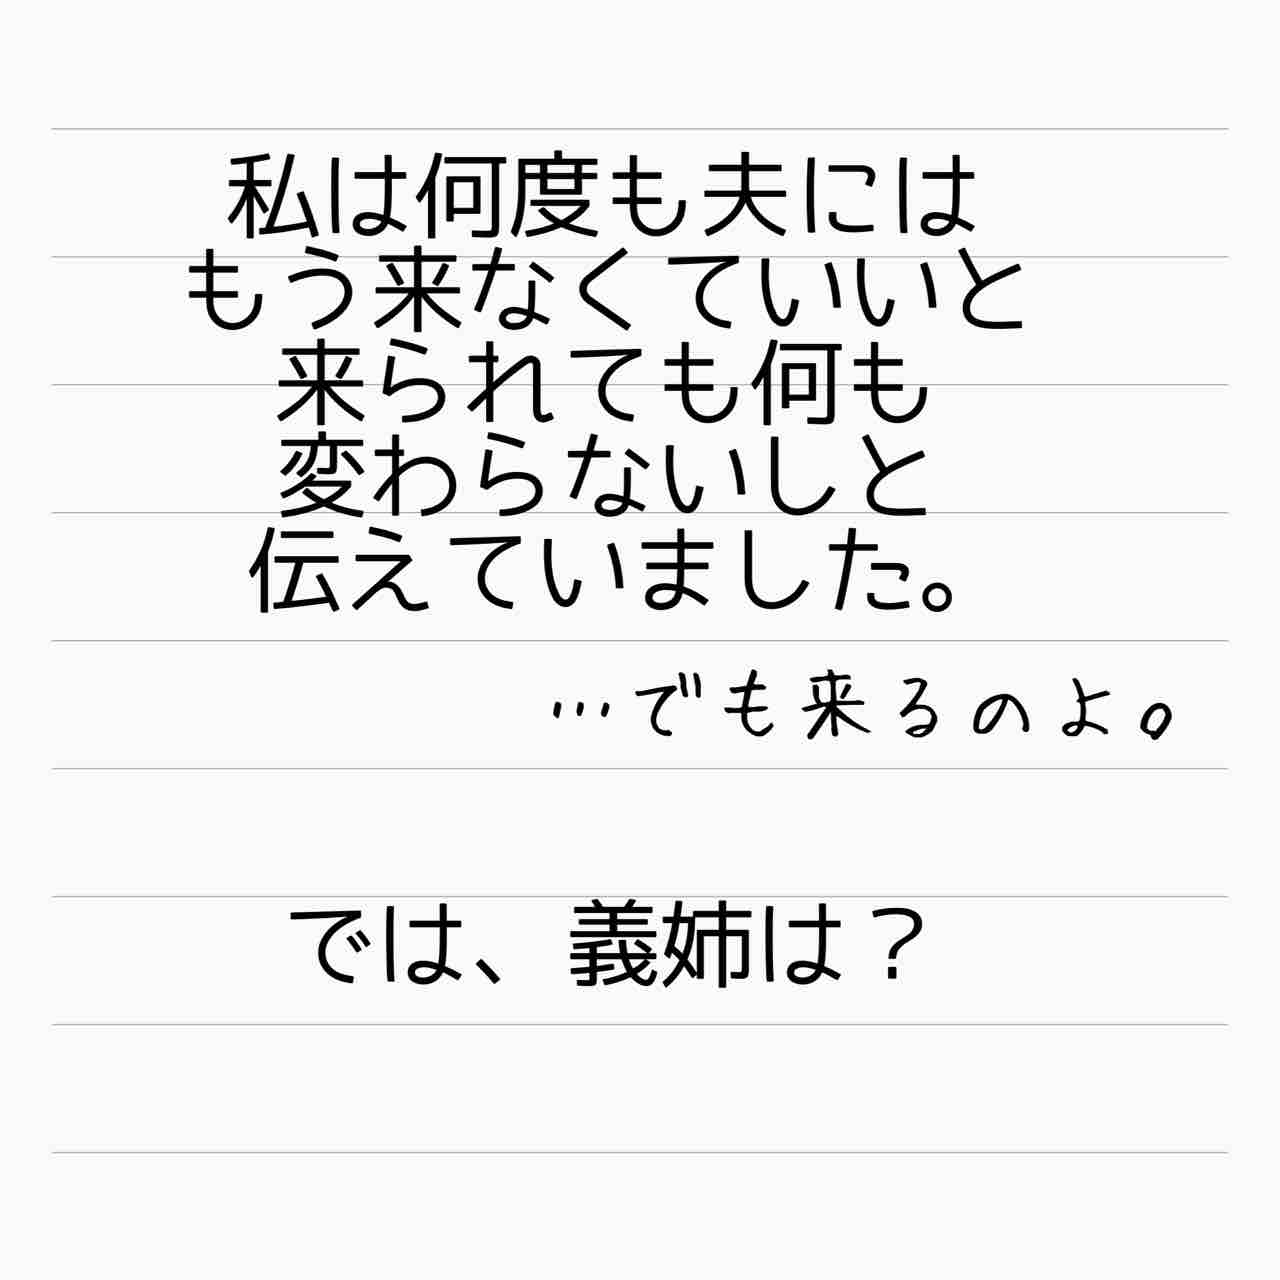 私は何度も夫には
もう来なくていいと
来られても何も
変わらないしと
伝えていました。
…でも来るのよ。
では、義姉は？